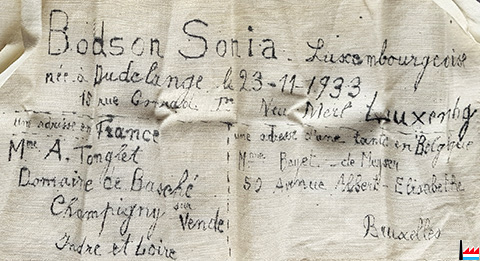 Bodson Sonia. Luxembourgeoise
née à Dudelange le 23-11-1933
18 rue Neu Merl Luxenbg
une adresse en France
Mme A. Tonglet
Domaine de Basché
Champigny sur Vende
Indre et Loire
une adresse d'une tante en Belgique
Mme de
50 Avenue Albert-Elisabethe
Bruxelles